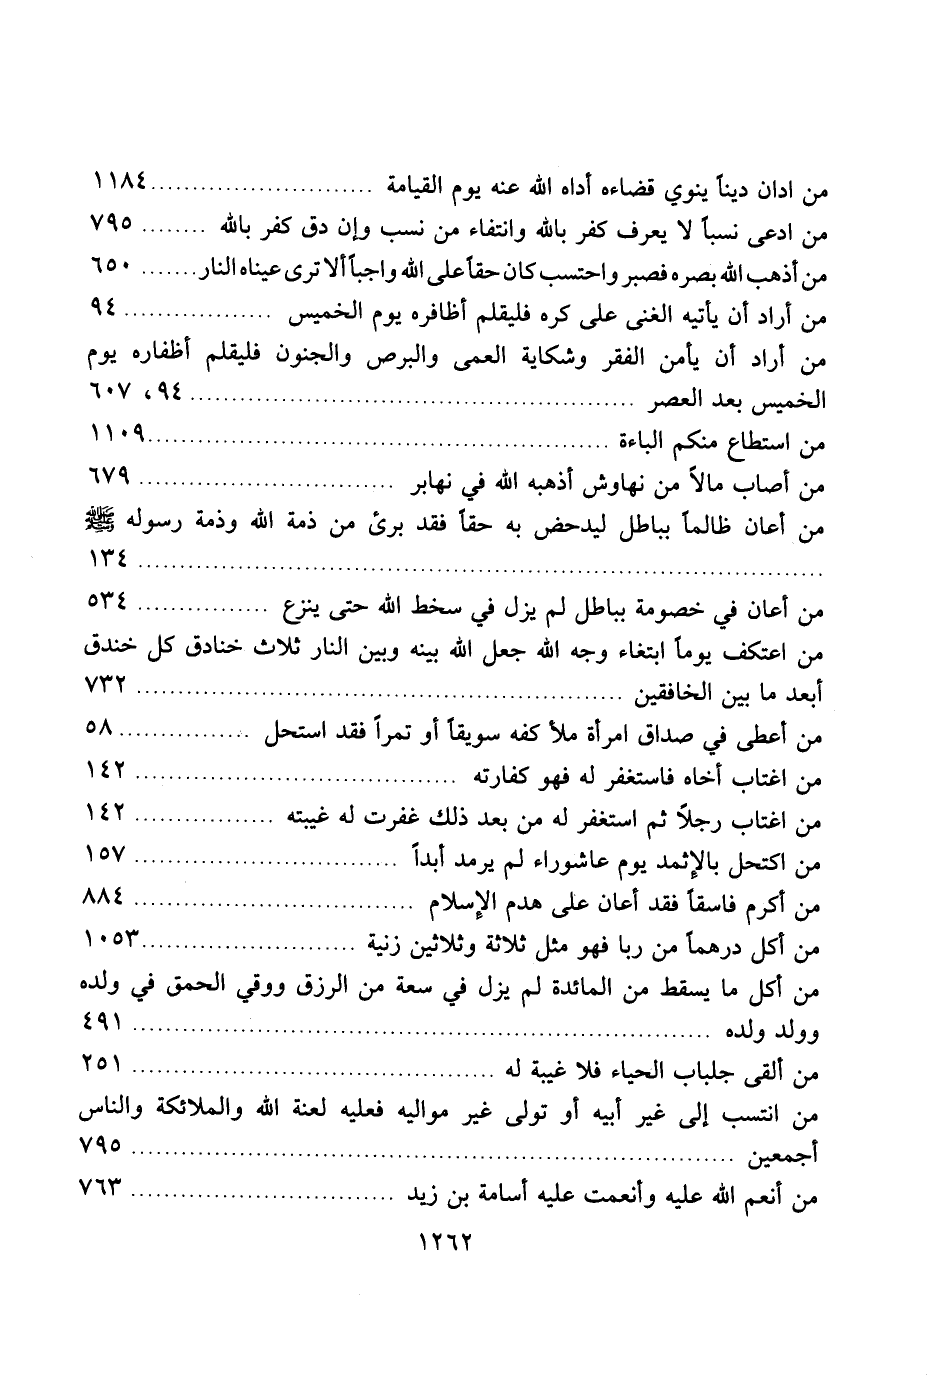 من ادان ديناً ينوي قضاءه أداه الله عنه يوم القيامة ........................... ١١٨٤
من ادعى نسباً لا يعرف كفر بالله وانتفاء من نسب وإن دق كفر بالله ........ ٧٩٥
من أذهب الله بصره فصبر واحتسب كان حقاً على الله واجباً ألا ترى عيناه النار ....... ٦٥٠
من أراد أن يأتيه الغنى على كره فليقلم أظافره يوم الخميس .................. ٩٤
من أراد أن يأمن الفقر وشكاية العمى والبرص والجنون فليقلم أظفاره يوم
الخميس بعد العصر ..................................................... ٩٤، ٦٠٧
من استطاع منكم الباءة ........................................................ ١١٠٩
من أصاب مالاً من نهاوش أذهبه الله في نهابر ............................... ٦٧٩
من أعان ظالماً بباطل ليدحض به حقاً فقد برئ من ذمة الله وذمة رسوله ﷺ
.................................................................................... ١٣٤
من أعان في خصومة بباطل لم يزل في سخط الله حتى ينزع ................ ٥٣٤
من اعتكف يوماً ابتغاء وجه الله جعل الله بينه وبين النار ثلاث خنادق كل خندق
أبعد ما بين الخافقين ........................................................... ٧٣٢
من أعطى في صداق امرأة ملأ كفه سويقاً أو تمراً فقد استحل ................ ٥٨
من اغتاب أخاه فاستغفر له فهو كفارته ....................................... ١٤٢
من اغتاب رجلاً ثم استغفر له من بعد ذلك غفرت له غيبته ................. ١٤٢
من اكتحل بالإثمد يوم عاشوراء لم يرمد أبداً ................................ ١٥٧
من أكرم فاسقاً فقد أعان على هدم الإسلام .................................. ٨٨٤
من أكل درهماً من ربا فهو مثل ثلاثة وثلاثين زنية .......................... ١٠٥٣
من أكل ما يسقط من المائدة لم يزل في سعة من الرزق ووقي الحمق في ولده
وولد ولده ...................................................................... ٤٩١
من ألقى جلباب الحياء فلا غيبة له ............................................ ٢٥١
من انتسب إلى غير أبيه أو تولى غير مواليه فعليه لعنة الله والملائكة والناس
أجمعين ......................................................................... ٧٩٥
من أنعم الله عليه وأنعمت عليه أسامة بن زيد ................................ ٧٦٣
١٢٦٢